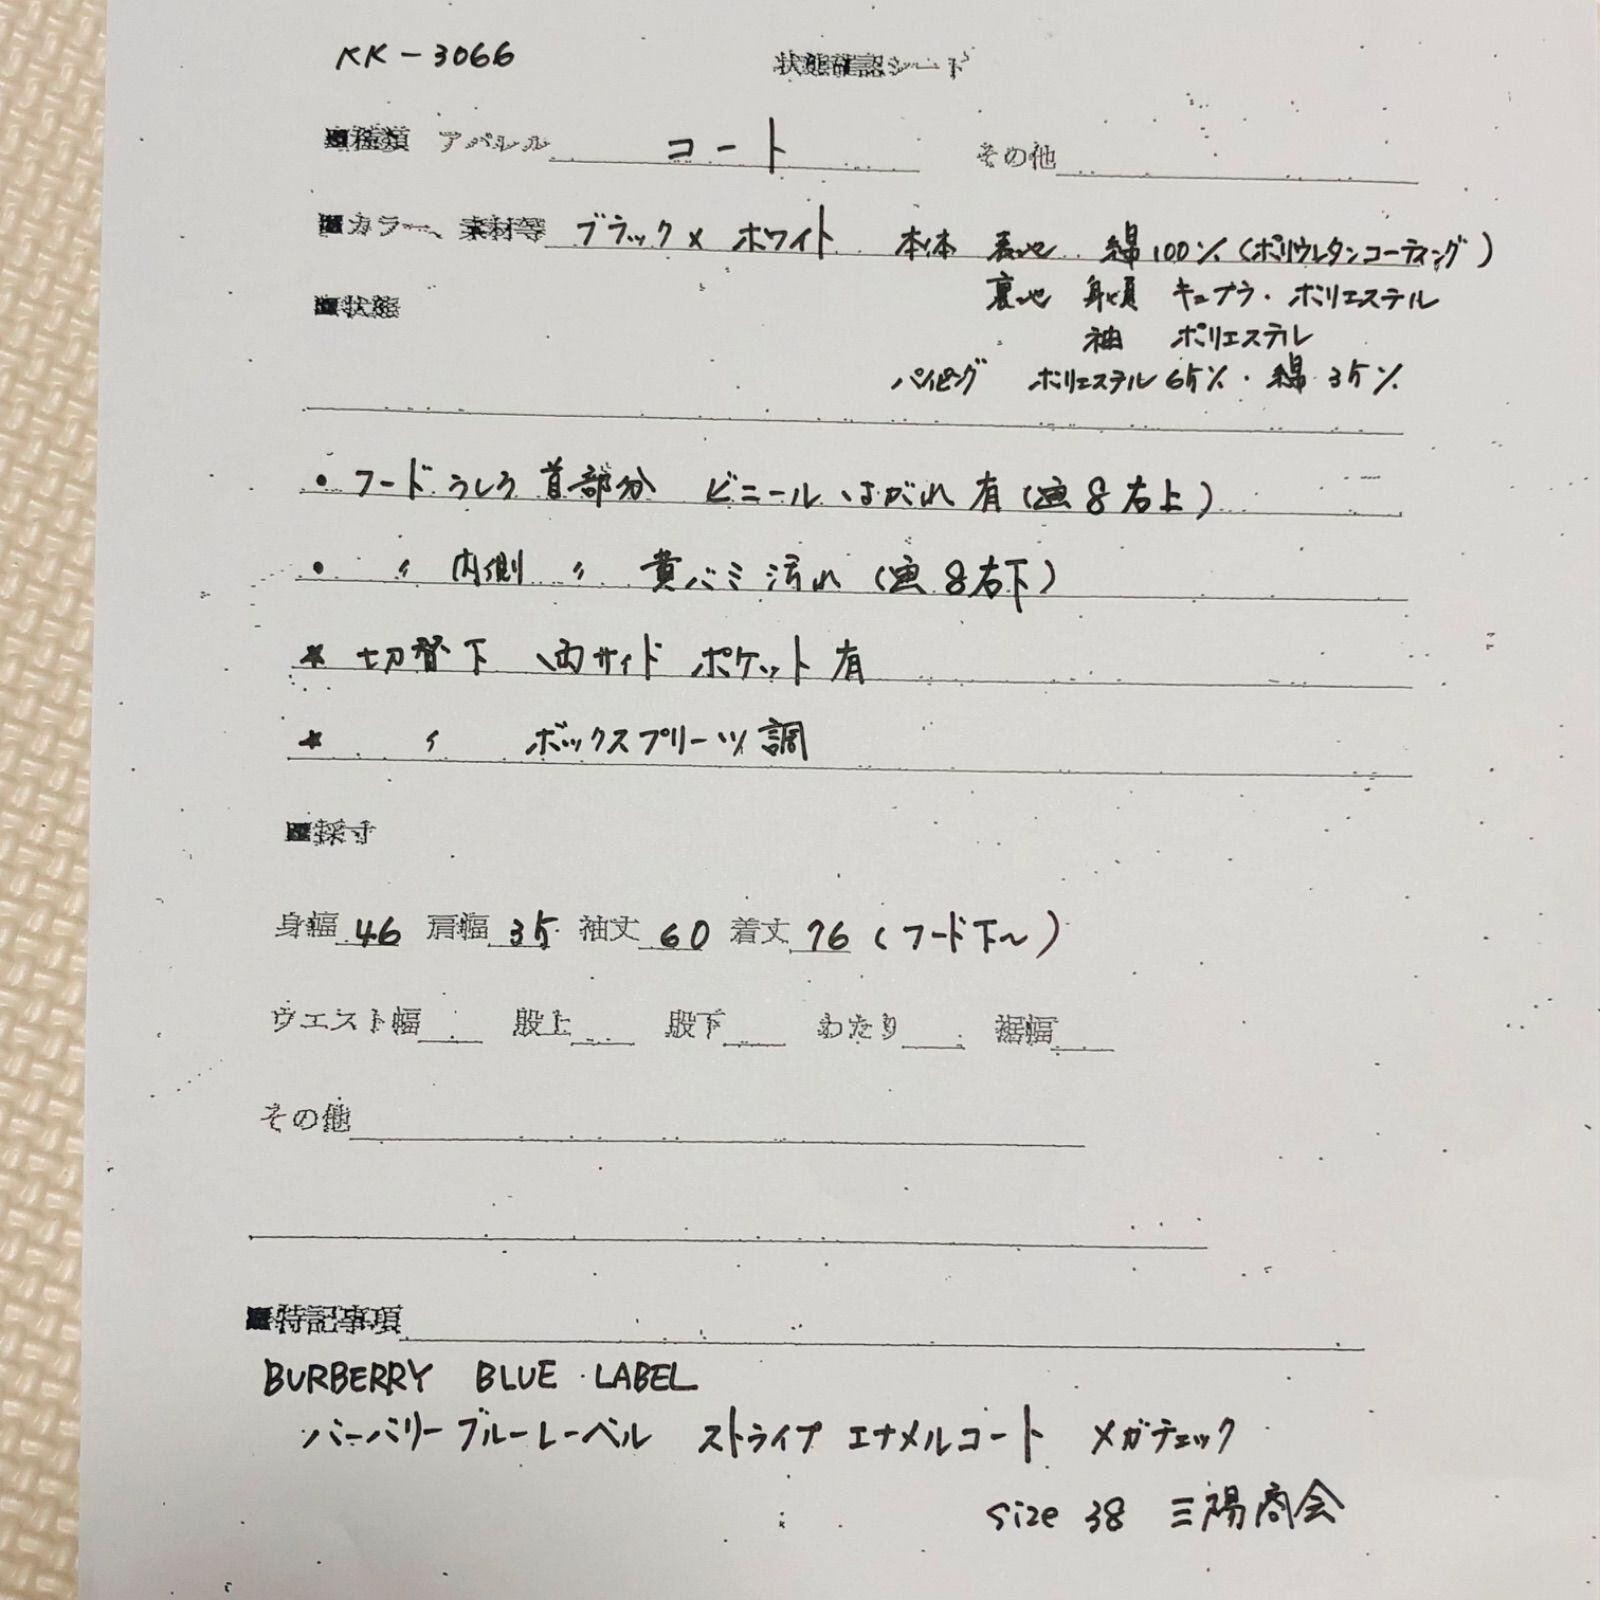 KK-3066 状態確認シート
■種類 アパレル コート その他
■カラー、素材等 ブラック×ホワイト 本体 表地 綿100%(ポリウレタンコーティング)
裏地 身頃 キュプラ・ポリエステル
■状態
袖 ポリエステル
パイピング ポリエステル65%・綿35%
・フードうしろ 首部分 ビニールはがれ有(画8右上)
・〃 内側 〃 黄バミ汚れ(画8右下)
★切替下 両サイドポケット有
★〃 ボックスプリーツ調
■採寸
身幅46 肩幅35 袖丈60 着丈76(フード下〜)
ウエスト幅 股上 股下 わたり 裾幅
その他
■特記事項
BURBERRY BLUE LABEL
バーバリーブルーレーベル ストライプ エナメルコート メガチェック
size 38 三陽商会